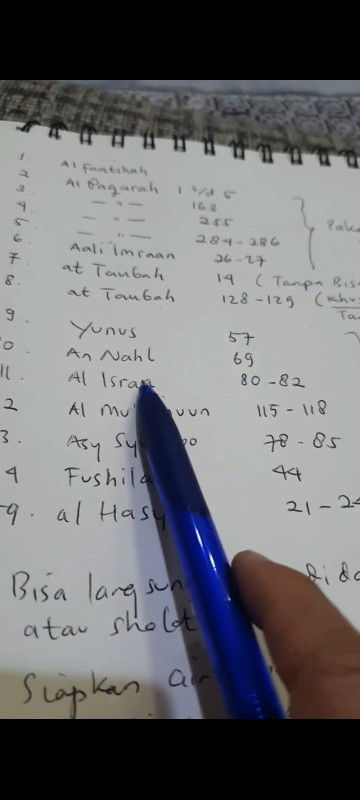 1. Al Faatihah
2. Al Baqarah 1 s/d 5
3. — " — 163
4. — " — 255
5. — " — 284 - 286
6. Aali Imraan 26 - 27
7. at Taubah 14 (Tanpa Bis
8. at Taubah 128 - 129 (Khu
9. Yunus 57
0. An Nahl 69
11. Al Isra 80 - 82
2 Al Mu nuun 115 - 118
3. Asy Sy 78 - 85
4 Fushila 44
al Hasy 21 - 24
Bisa langsun di da
atau sholat
Siapkan air